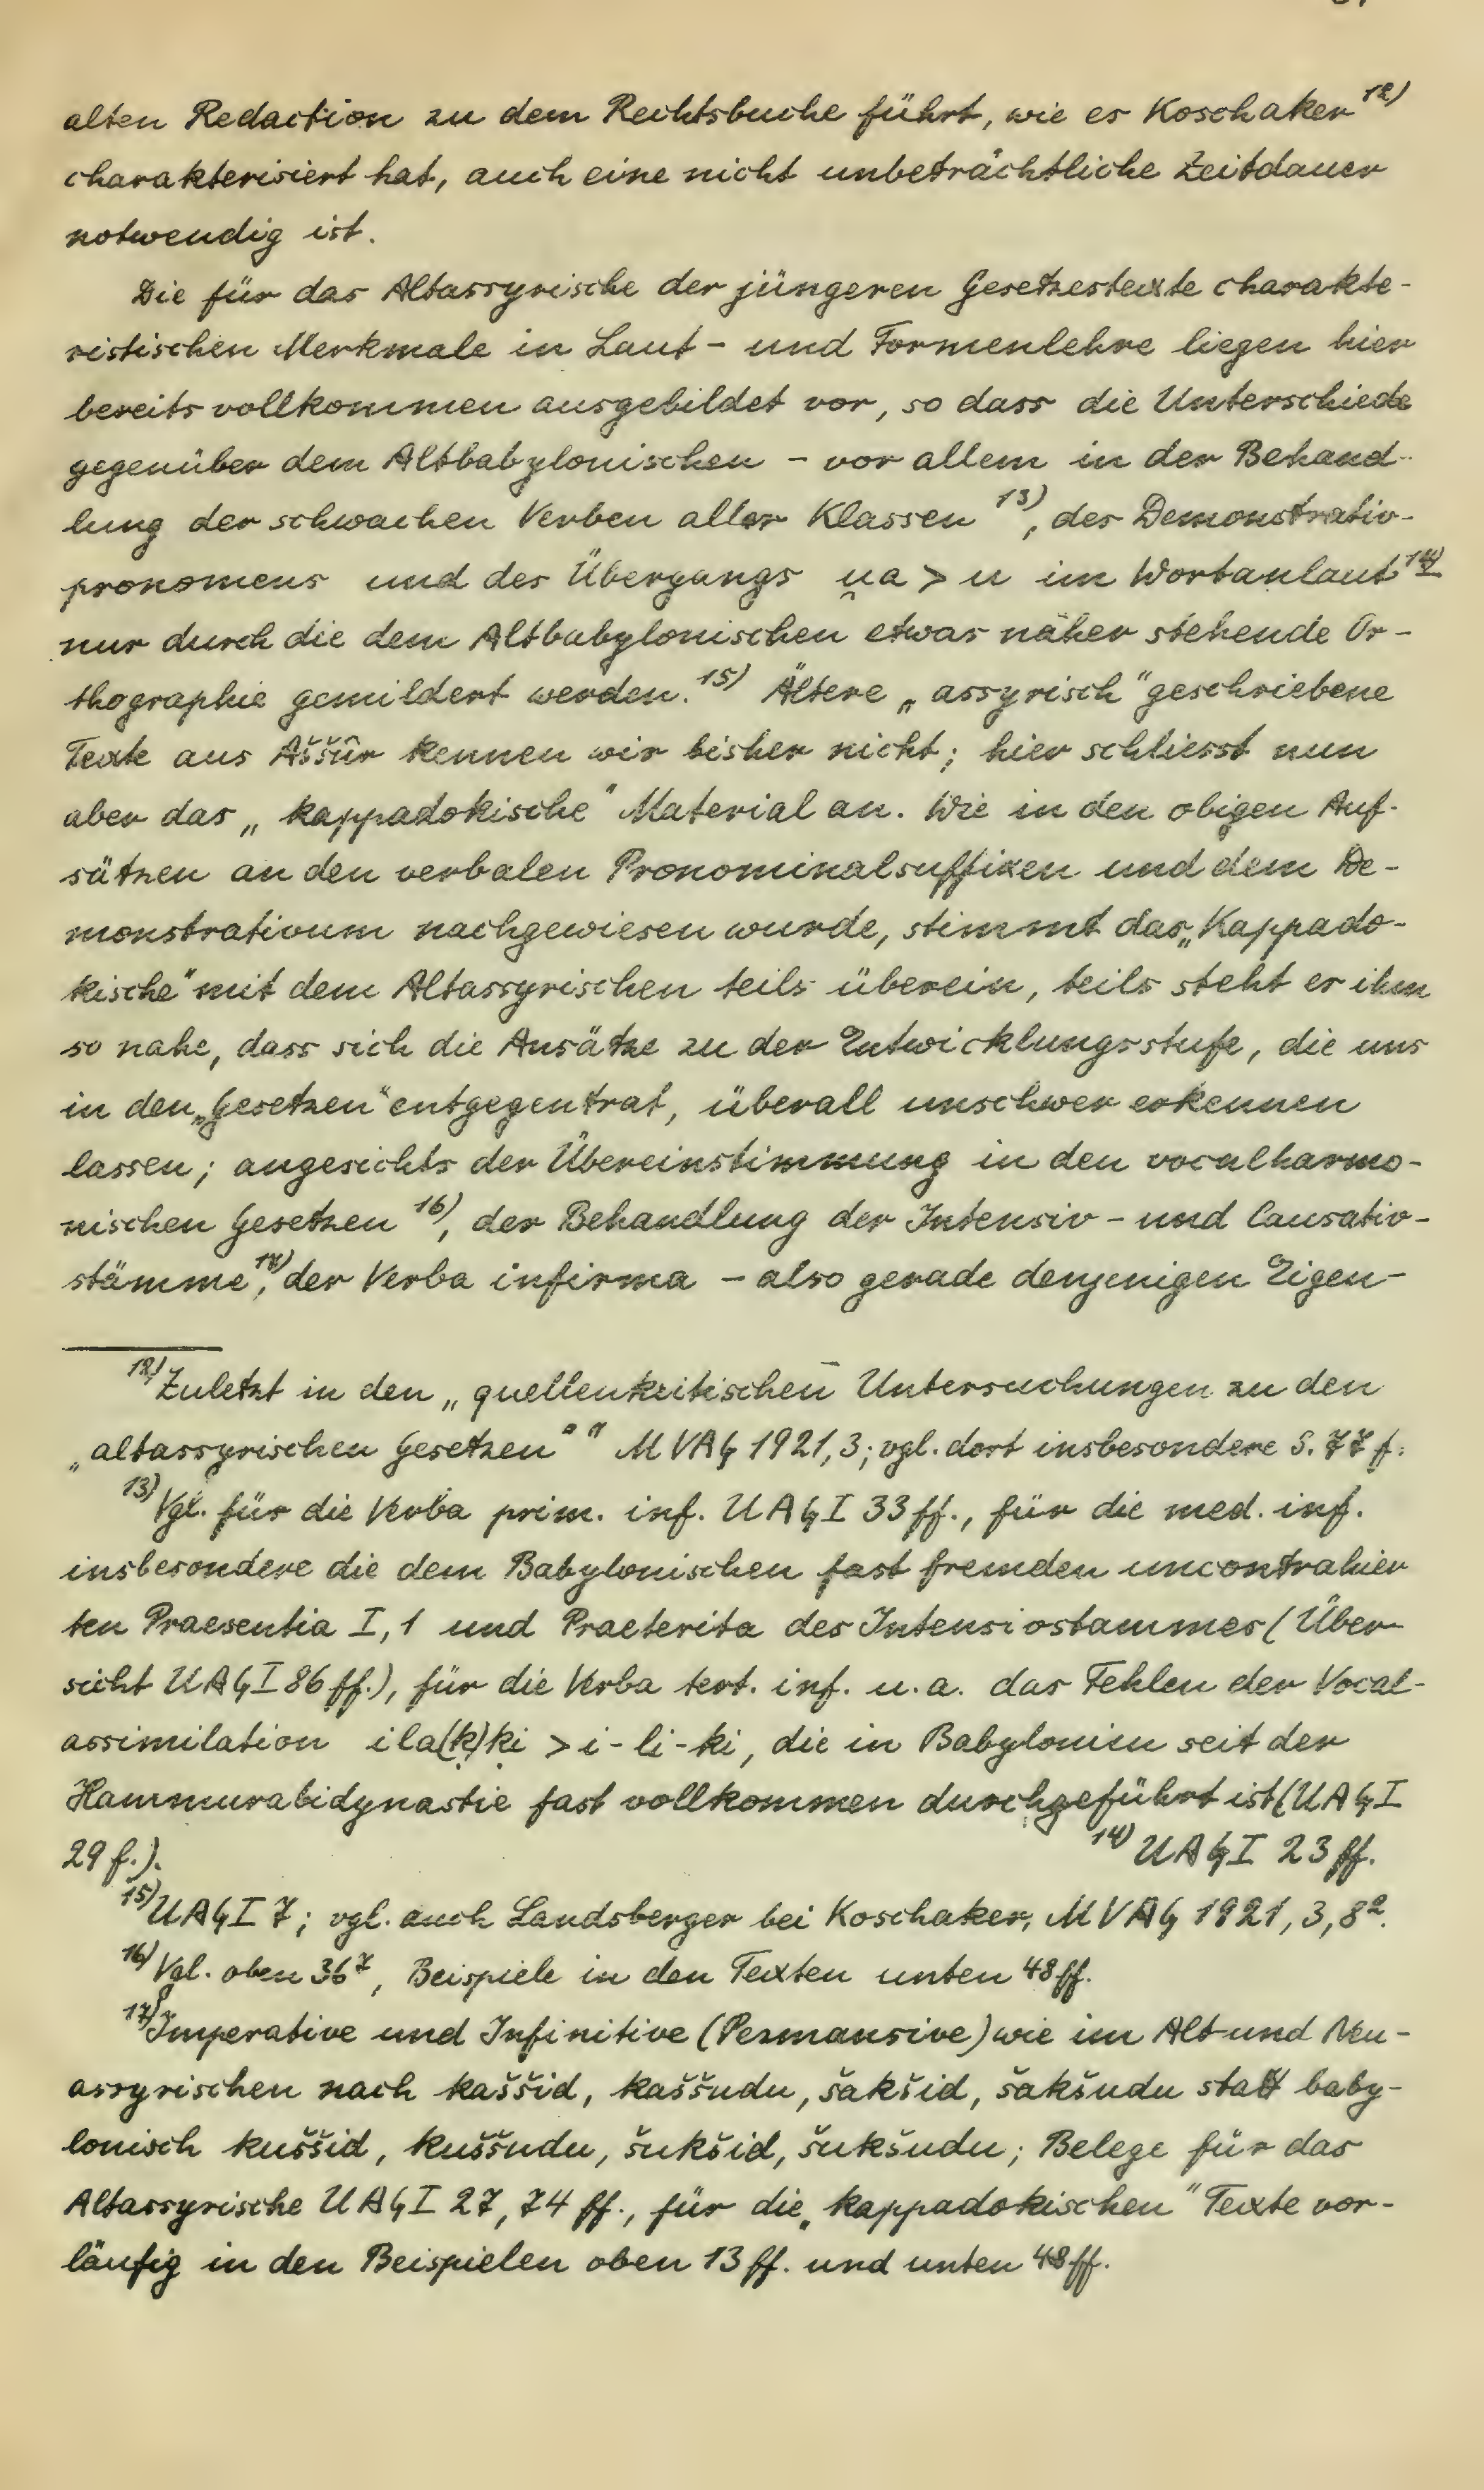 alten Redaction zu dem Rechtsbuche führt, wie es Koschaker 12)
charakterisiert hat, auch eine nicht unbeträchtliche Zeitdauer
notwendig ist.
Die für das Altassyrische der jüngeren Gesetzestexte charakte-
ristischen Merkmale in Laut- und Formenlehre liegen hier
bereits vollkommen ausgebildet vor, so dass die Unterschiede
gegenüber dem Altbabylonischen – vor allem in der Behand-
lung der schwachen Verben aller Klassen 13), des Demonstrativ-
pronomens und des Übergangs u̯a > u im Wortanlaut 14)
nur durch die dem Altbabylonischen etwas näher stehende Or-
thographie gemildert werden. 15) Ältere „assyrisch" geschriebene
Texte aus Aššûr kennen wir bisher nicht; hier schliesst nun
aber das „kappadokische" Material an. Wie in den obigen Auf-
sätzen an den verbalen Pronominalsuffixen und dem De-
monstrativum nachgewiesen wurde, stimmt das „Kappado-
kische" mit dem Altassyrischen teils überein, teils steht er ihm
so nahe, dass sich die Ansätze zu der Entwicklungsstufe, die uns
in den „Gesetzen" entgegentrat, überall unschwer erkennen
lassen; angesichts der Übereinstimmung in den vocalharmo-
nischen Gesetzen 16), der Behandlung der Intensiv- und Causativ-
stämme 17), der Verba infirma – also gerade denjenigen Eigen-
12) Zuletzt in den „quellenkritischen Untersuchungen zu den
„altassyrischen Gesetzen" " MVAG 1921,3; vgl. dort insbesondere S. 77 f.
13) Vgl. für die Verba prim. inf. UAG I 33 ff., für die med. inf.
insbesondere die dem Babylonischen fast fremden uncontrahier
ten Praesentia I,1 und Praeterita des Intensivstammes (Über-
sicht UAG I 86 ff.), für die Verba tert. inf. u.a. das Fehlen der Vocal-
assimilation ila(ḳ)ḳi > i-li-ki, die in Babylonien seit der
Hammurabidynastie fast vollkommen durchgeführt ist (UAG I
29 f.). 14) UAG I 23 ff.
15) UAG I 7; vgl. auch Landsberger bei Koschaker, MVAG 1921, 3, 8².
16) Vgl. oben 36⁷, Beispiele in den Texten unten 48 ff.
17) Imperative und Infinitive (Permansive) wie im Alt- und Neu-
assyrischen nach kaššid, kaššudu, šakšid, šakšudu statt baby-
lonisch kuššid, kuššudu, šukšid, šukšudu; Belege für das
Altassyrische UAG I 27, 74 ff., für die „kappadokischen" Texte vor-
läufig in den Beispielen oben 13 ff. und unten 48 ff.